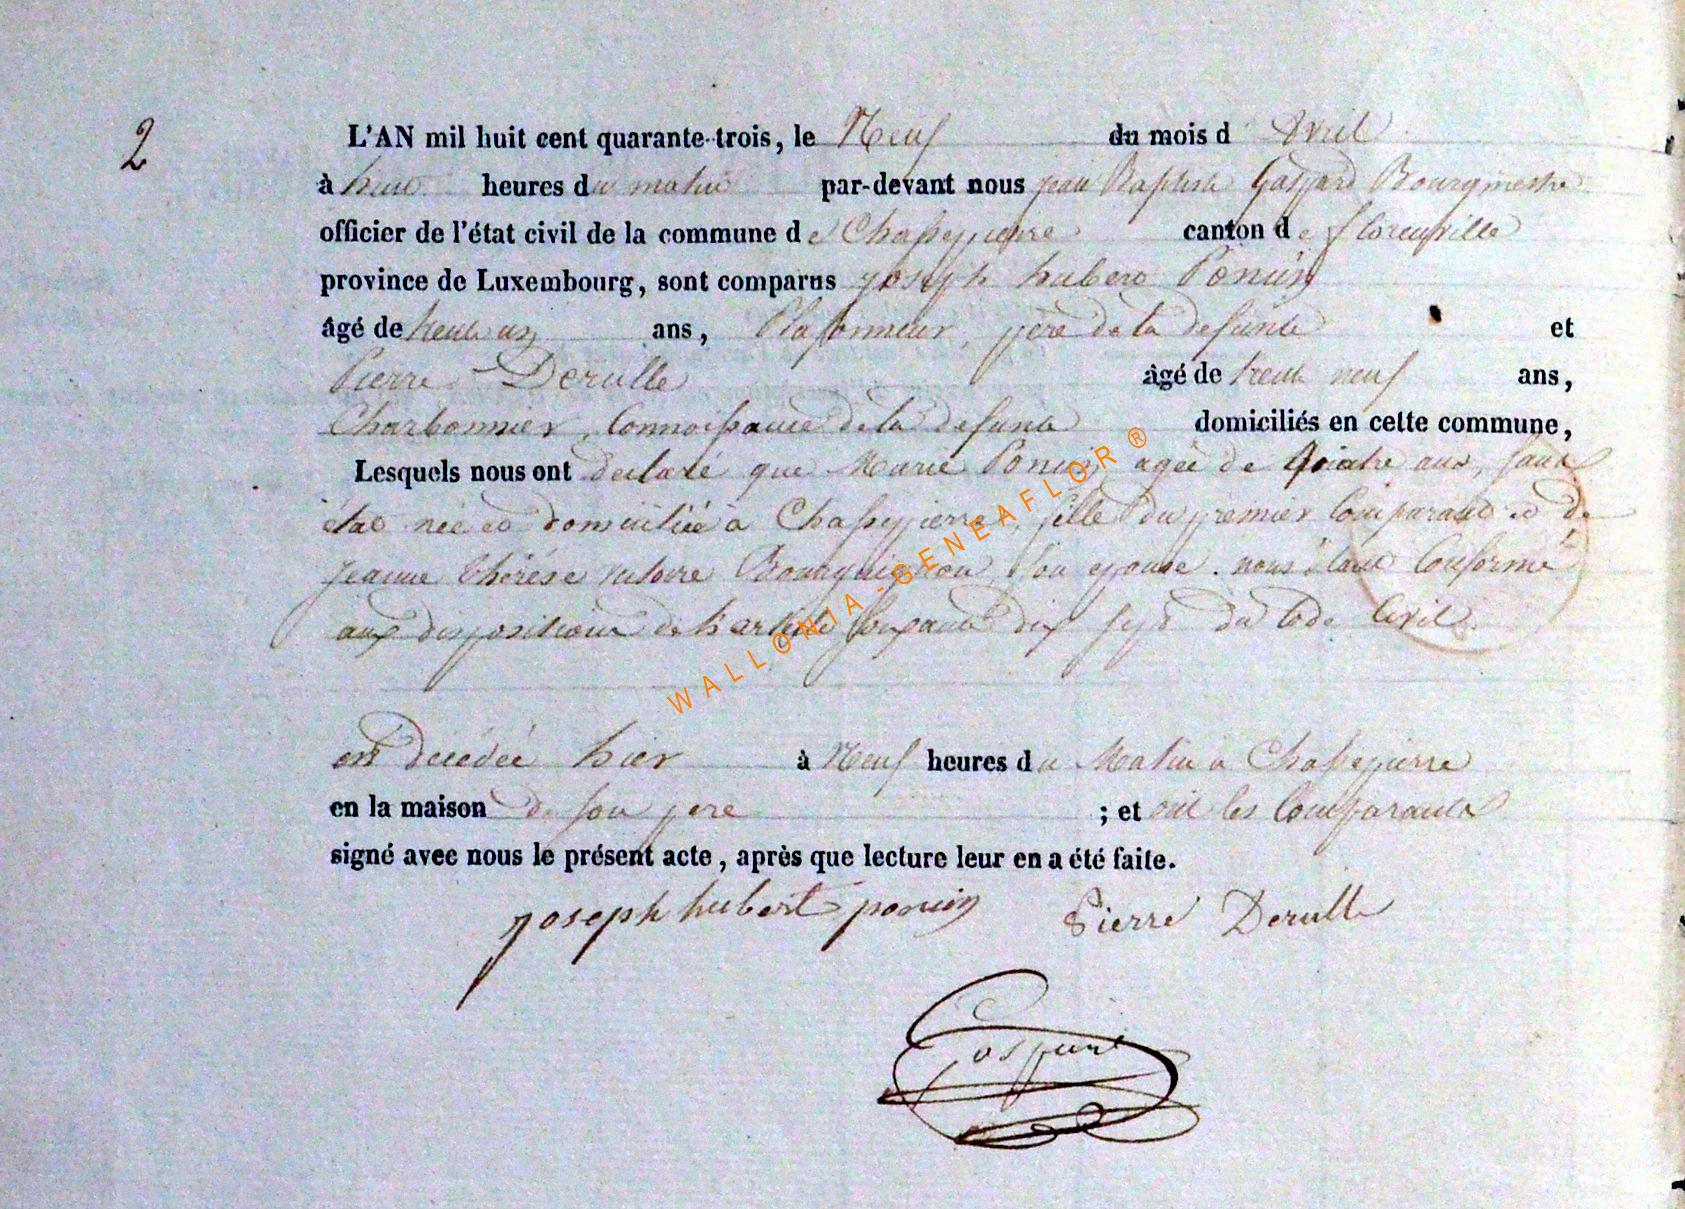 2
L'AN mil huit cent quarante-trois, le Neuf du mois d'Avril
à huit heures du matin par-devant nous jean Baptiste Gaspard Bourgmestre
officier de l'état civil de la commune de Chassepierre canton de florenville
province de Luxembourg, sont comparus joseph hubert Poncin
âgé de trente ans, Plafonneur, père de la defunte et
Pierre Derulle âgé de trente neuf ans,
Charbonnier, Connoissance de la defunte domiciliés en cette commune,
Lesquels nous ont declaré que Marie Poncin, agée de Quatre ans, sans
état née et domiciliée à Chassepierre, fille du premier Comparant et de
Jeanne thérése Bourguignon, son epouse. nous étant Conformé
aux dispositions de l'article soixante dix sept du Code Civil.
est décédée hier à Neuf heures du Matin a Chassepierre
en la maison de son pere ; et ont les Comparants
signé avec nous le présent acte, après que lecture leur en a été faite.
joseph hubert poncin Pierre Derulle
Gaspard
WALLONIA-GENEAFLOR ®